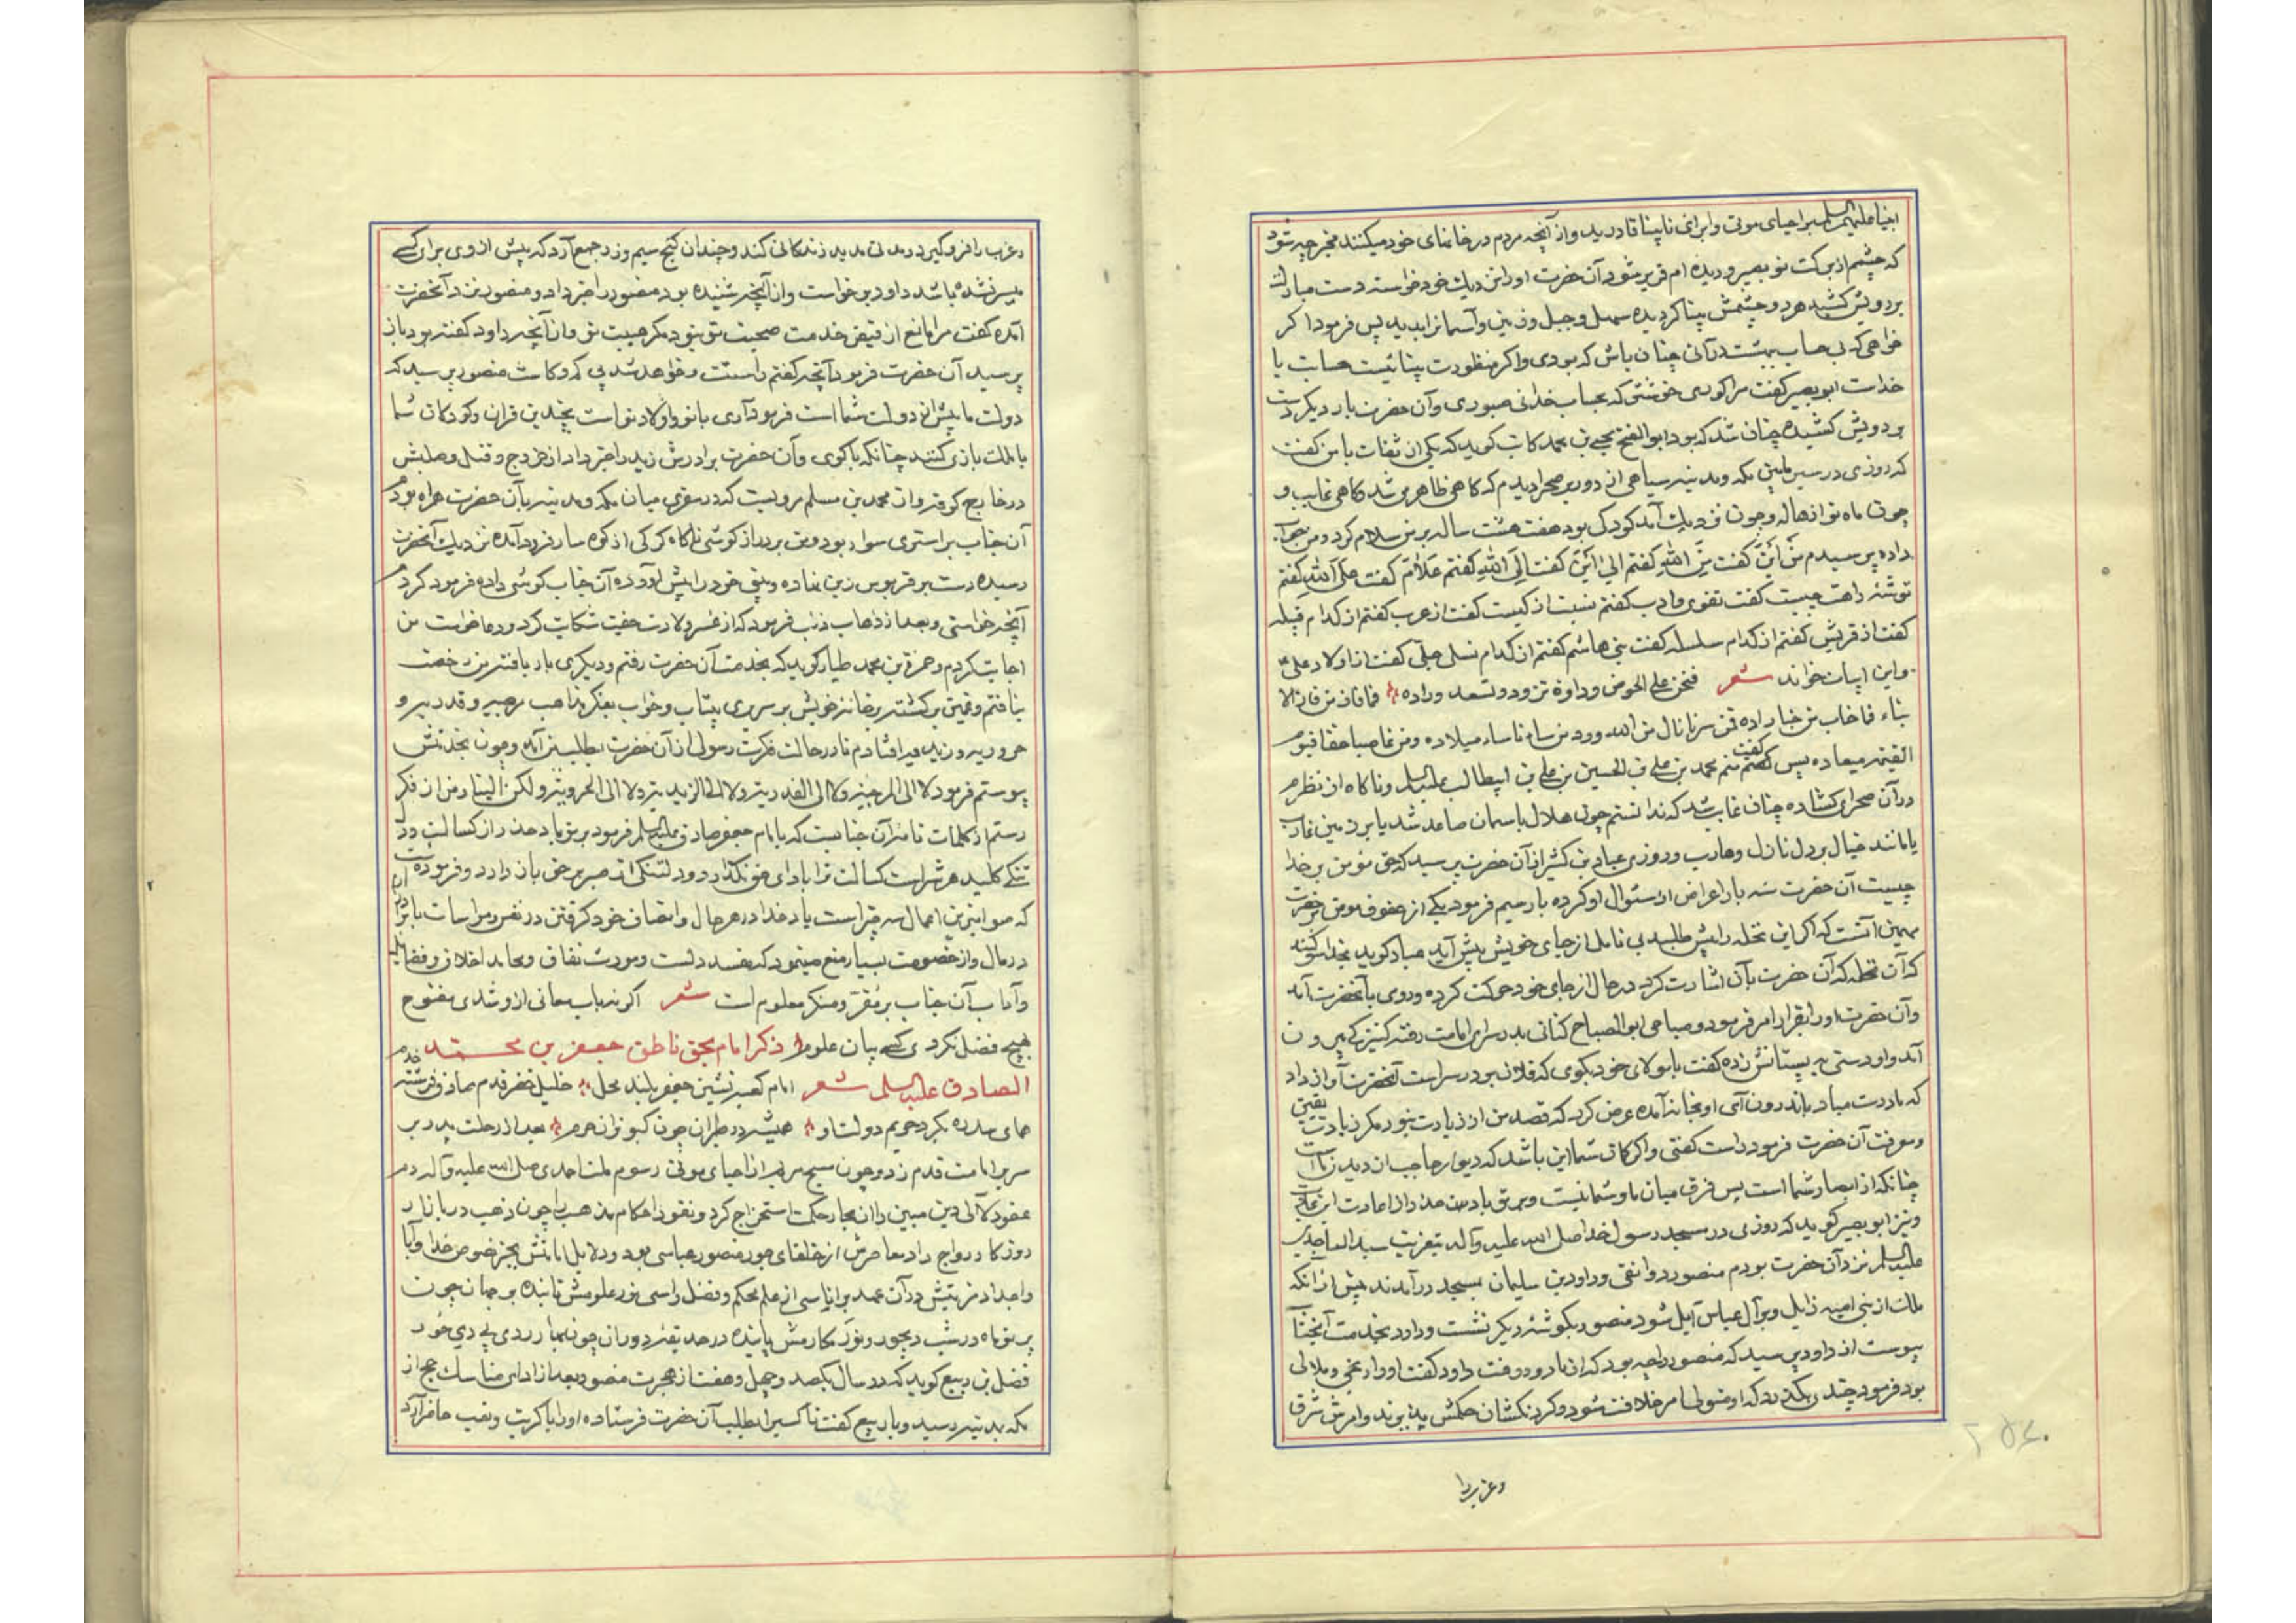 انبیا علیهم السلم براحیای موتی وابرای نابینا قادرید واز آنچه مردم در خانهای خود میکنند مخبر چه شود
که چشمم از برکت تو بصیر و دیده ام قریر شود آن حضرت اورا نزدیك خود خواسته دست مبارك
بر رویش کشید هر دو چشمش بینا گردیده سهل وجبل وزمین وآسمانرا بدید پس فرمود اگر
خواهی که بی حساب ببهشت درآئی چنان باش که بودی واگر منظورت بینائیست حسابت با
خداست ابوبصیر گفت مرا کوری خوشتر که بحساب خدا نی صبوری وآن حضرت بار دیگر دست
بر رویش کشیده چنان شد که بود ابوالفتح یحیی بن محمد کاتب گوید که یکی از ثقات با من گفت
که روزی در سیر مابین مکه ومدینه سیاهی از دور بصحرا دیدم که گاهی ظاهر میشد گاهی غایب و
چون ماه نو از هاله وچون نزدیك آمد کودکی بود هفت هشت ساله بر من سلام کرد ومن جواب
داده پرسیدم مِن اَینَ گفت مِنَ اللهِ گفتم الیٰ اَینَ گفت اِلَی اللهِ گفتم عَلامَ گفت عَلَی اللهِ گفتم
توشئه راهت چیست گفت تقوی وادب گفتم نسبت از کیست گفت از عرب گفتم از کدام قبیله
گفت از قریش گفتم از کدام سلسله گفت بنی هاشم گفتم از کدام نسل جلی گفت از اولاد علی
واین ابیات خواند شعر فنحن علی الحوض وداوة نزود ونسعد وراده فما فاز من فاز الا
بناء فما خاب من حبنا زاده فمن سرنا نال من الله ورد من ساءنا ساء میلاده ومن غاصبا حقنا فیوم
القیمه میعاده پس گفت منم محمد بن علی بن الحسین بن علی بن ابیطالب علیه السلم وناگاه از نظرم
درآن صحرای گشاده چنان غایب شد که ندانستم چون هلال باسمان صاعد شد یا بر زمین غارب
یا مانند خیال بر دل نازل وهارب وروزی عباد بن کثیر از آن حضرت پرسید که حق مؤمن بر خدا
چیست آن حضرت سه بار اعراض از سئوال او کرده بار سیم فرمود یکی از حقوق مومن بر حضرت
مهیمن آنست که اگر این نخله را پیش طلبد بی تامل از جای خویش پیش آید عباد گوید بخدا سوگند
که آن نخله که آن حضرت بآن اشارت کرد در حال از جای خود حرکت کرده وروی بآنحضرت آمد
وآن حضرت اورا بقرار امر فرمود وصباحی ابوالصباح کنانی بدر سرای امامت رفته کنیزکی بیرون
آمد واو دستی به پستانش زده گفت بامولای خود بگوی که فلان بر در سراست آنحضرت آواز داد
که مادرت میاد باندرون آی او بخانه آمده عرض کرد که قصد من از زیادت نبود مگر زیادت یقین
ومعرفت آن حضرت فرمود راست گفتی واگر گمان شما این باشد که دیوار حاجب از دیدن ماست
چنانکه از ابصار شما است پس فرق میان ما وشما نیست وبر تو باد حذر از اعادت این عادت
ونیز ابوبصیر گوید که روزی در مسجد رسول خدا صلی الله علیه وآله بتعزیت سید الساجدین
علیه السلم نزد آن حضرت بودم منصور دوانقی وداود بن سلیمان بمسجد درآمدند پیش از آنکه
ملك از بنی امیه زایل وبر آل عباس آیل شود منصور بگوشئه دیگر نشست وداود بخدمت آنجناب
پیوست از داود پرسید که منصور را چه بود که از ما دور رفت داود گفت اورا رنجی وملالی
بود فرمود چندی نگذرد که او متولی امر خلافت شود وگردنکشان حکمش پذیرند وامرش شرق
وغرب را
وغرب را فرو گیرد ومدتی مدید زندگانی کند وچندان گنج سیم وزر جمع آرد که پیش از وی برای کسی
میسر نشده باشد داود برخواست واز آنچه شنیده بود منصور را خبر داد ومنصور نزد آنحضرت
آمده گفت مرا مانع از فیض خدمت صحبت تو نبود مگر هیبت تو واز آنچه داود گفته بود باز
پرسید آن حضرت فرمود آنچه گفتم راستست وخواهد شد بی کم وکاست منصور پرسید که
دولت ما پیش از دولت شما است فرمود آری با تو واولاد تو است بچندین قران وکودکان شما
با ملك بازی کنند چنانکه با گوی وآن حضرت برادرش زید را خبر داد از خروج وقتل وصلبش
در خارج کوفه واز محمد بن مسلم مرویست که در سفری میان مکه ومدینه بآن حضرت همراه بودم
آن جناب بر استری سوار بود ومن بر دراز گوشی ناگاه گرگی از کوه سار فرود آمده نزدیك آنحضرت
رسیده دست بر قربوس زین نهاده وبینی خود را پیش آورده آن جناب گوش داده فرمود کردم
آنچه خواستی وبعد از ذهاب ذئب فرمود که از عسر ولادت جفیت شکایت کرد ودعا خواست من
اجابت کردم وحمزة بن محمد طیار گوید که بخدمت آن حضرت رفتم ودیگری بار یافته من رخصت
نیافتم وغمین برگشته بخانه خویش بر سریری بیتاب وخواب بفکر مذاهب مرجیه وقدریه و
حروریه وزیدیه افتادم نا در حالت فکرت رسولی از آن حضرت بطلبم آمد وچون بخدمتش
پیوستم فرمود لا الی المرجیه ولا الی القدریه ولا الی الزیدیه ولا الی الحروریه ولکن الینا ومن از فکر
رستم از کلمات تامه آن جنابست که بامام جعفر صادق علیه السلم فرمود بر تو باد حذر از کسالت ودل
تنگی کلید هر شراست کسالت ترا باداى حق نگذارد ودلتنگی از صبر بر حق باز دارد وفرموده است
که صوابترین اعمال سه چیز است یاد خدا در هر حال وانصاف خود گرفتن در نفس ومواسات با برادران
در مال واز خصومت بسیار منع مینمود که مفسد دلست ومورث نفاق ومحامد اخلاق وفضایل
وآداب آن جناب بر مُقرّ ومنکر معلوم است شعر اگر نه باب معانی از او شدی مفتوح
هیچ فضل نکردی کسی بیان علوم ذکر امام بحق ناطق جعفر بن محمد
الصادق علیه السلم شعر امام کعبه نشین جعفر بلند محل خلیل خضر قدم صادق فرشته خدم
همای سدره بگرد حریم دولت او همیشه در طیران چون کبوتران حرم بعد از رحلت پدر بر
سریر امامت قدم زد وچون مسیح مریم از احیای موتی رسوم ملت احمدی صلی الله علیه وآله دم
عقود لآلی دین مبین را از بحار حکمت استخراج کرد ونقود احکام مذهب را چون ذهب در بازار
روزگار رواج داد معاصرش از خلفای جور منصور عباسی بود ودلایل امامتش بجز نصوص خدا وآبا
واجداد مزیتش درآن عهد بر اناسی از علم محکم وفضل راسی نور علومش تابنده بر جهان چون
پرتو ماه در شب دیجور ونور مکارمش پاینده در حد یقه دوران چون بهار ردی بی دی خور
فضل بن ربیع گوید که در سال یکصد وچهل وهفت از هجرت منصور بعد از ادای مناسك حج از
مکه بمدینه رسید وبا ربیع گفت تا کسیرا بطلب آن حضرت فرستاده اورا باکربت وتعب حاضر آرد